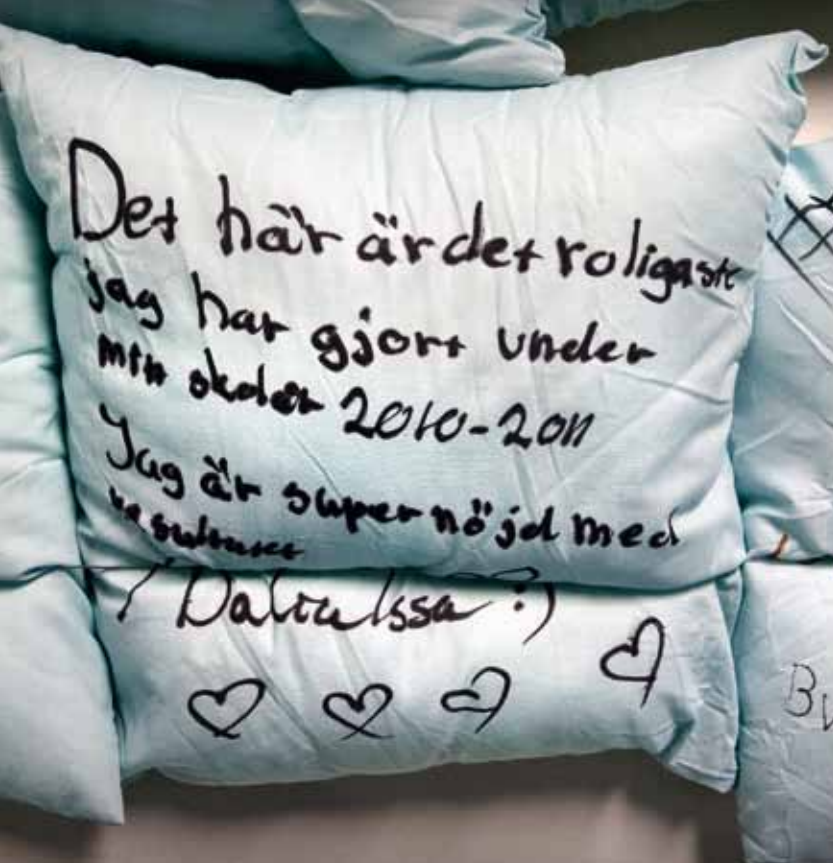 Det här är det roligaste
jag har gjort under
min skolår 2010-2011
Jag är super nöjd med
resultatet
/ Dalia Issa :)